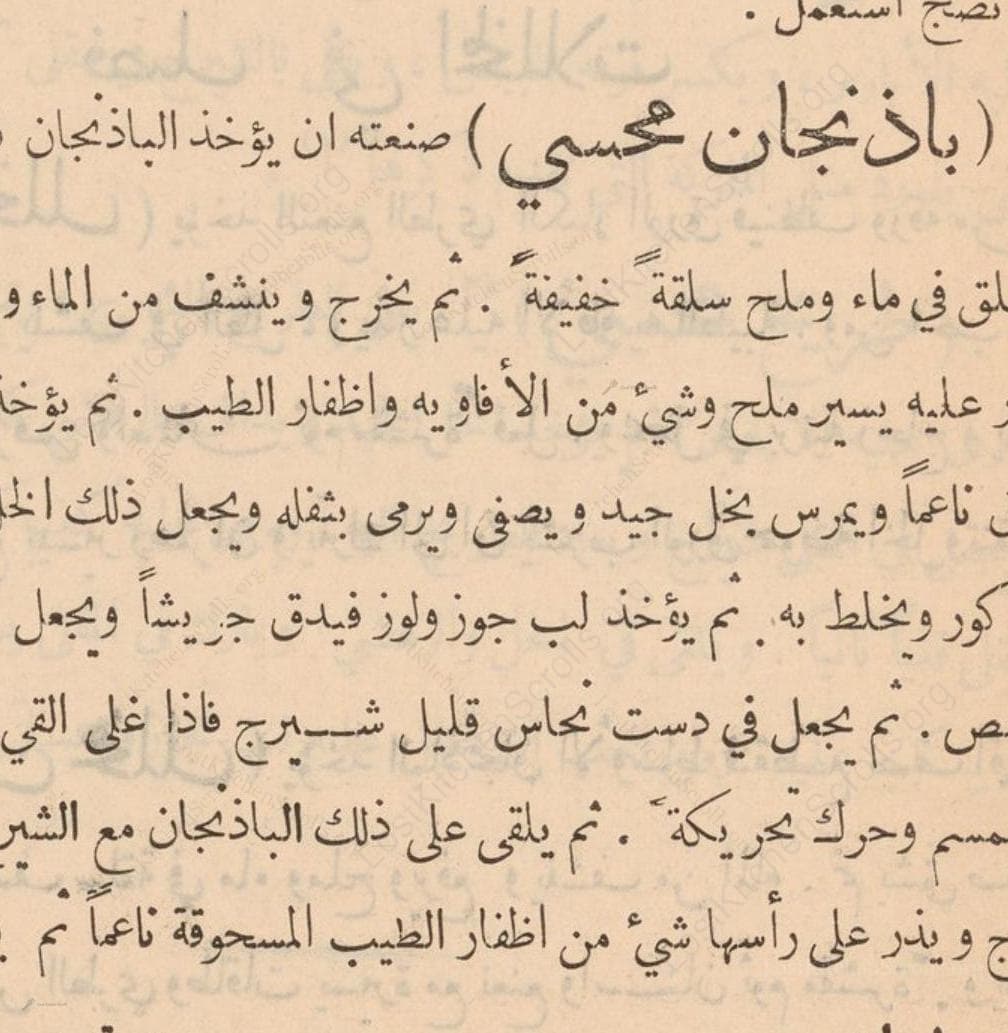 نضج استعمل .
( باذنجان محسي ) صنعته ان يؤخذ الباذنجان
في ماء وملح سلقة ً خفيفة ً . ثم يخرج و ينشف من الماء و
عليه يسير ملح وشيء من الأفاويه واظفار الطيب . ثم يؤخذ
ناعماً و يمرس بخل جيد و يصفى ويرمى بثفله ويجعل ذلك
ويخلط به . ثم يؤخذ لب جوز ولوز فيدق جريشاً ويجعل
. ثم يجعل في دست نحاس قليل شـــيرج فاذا غلى القي
وحرك تحريكة ً . ثم يلقى على ذلك الباذنجان مع
و يذر على رأسها شيء من اظفار الطيب المسحوقة ناعماً ثم